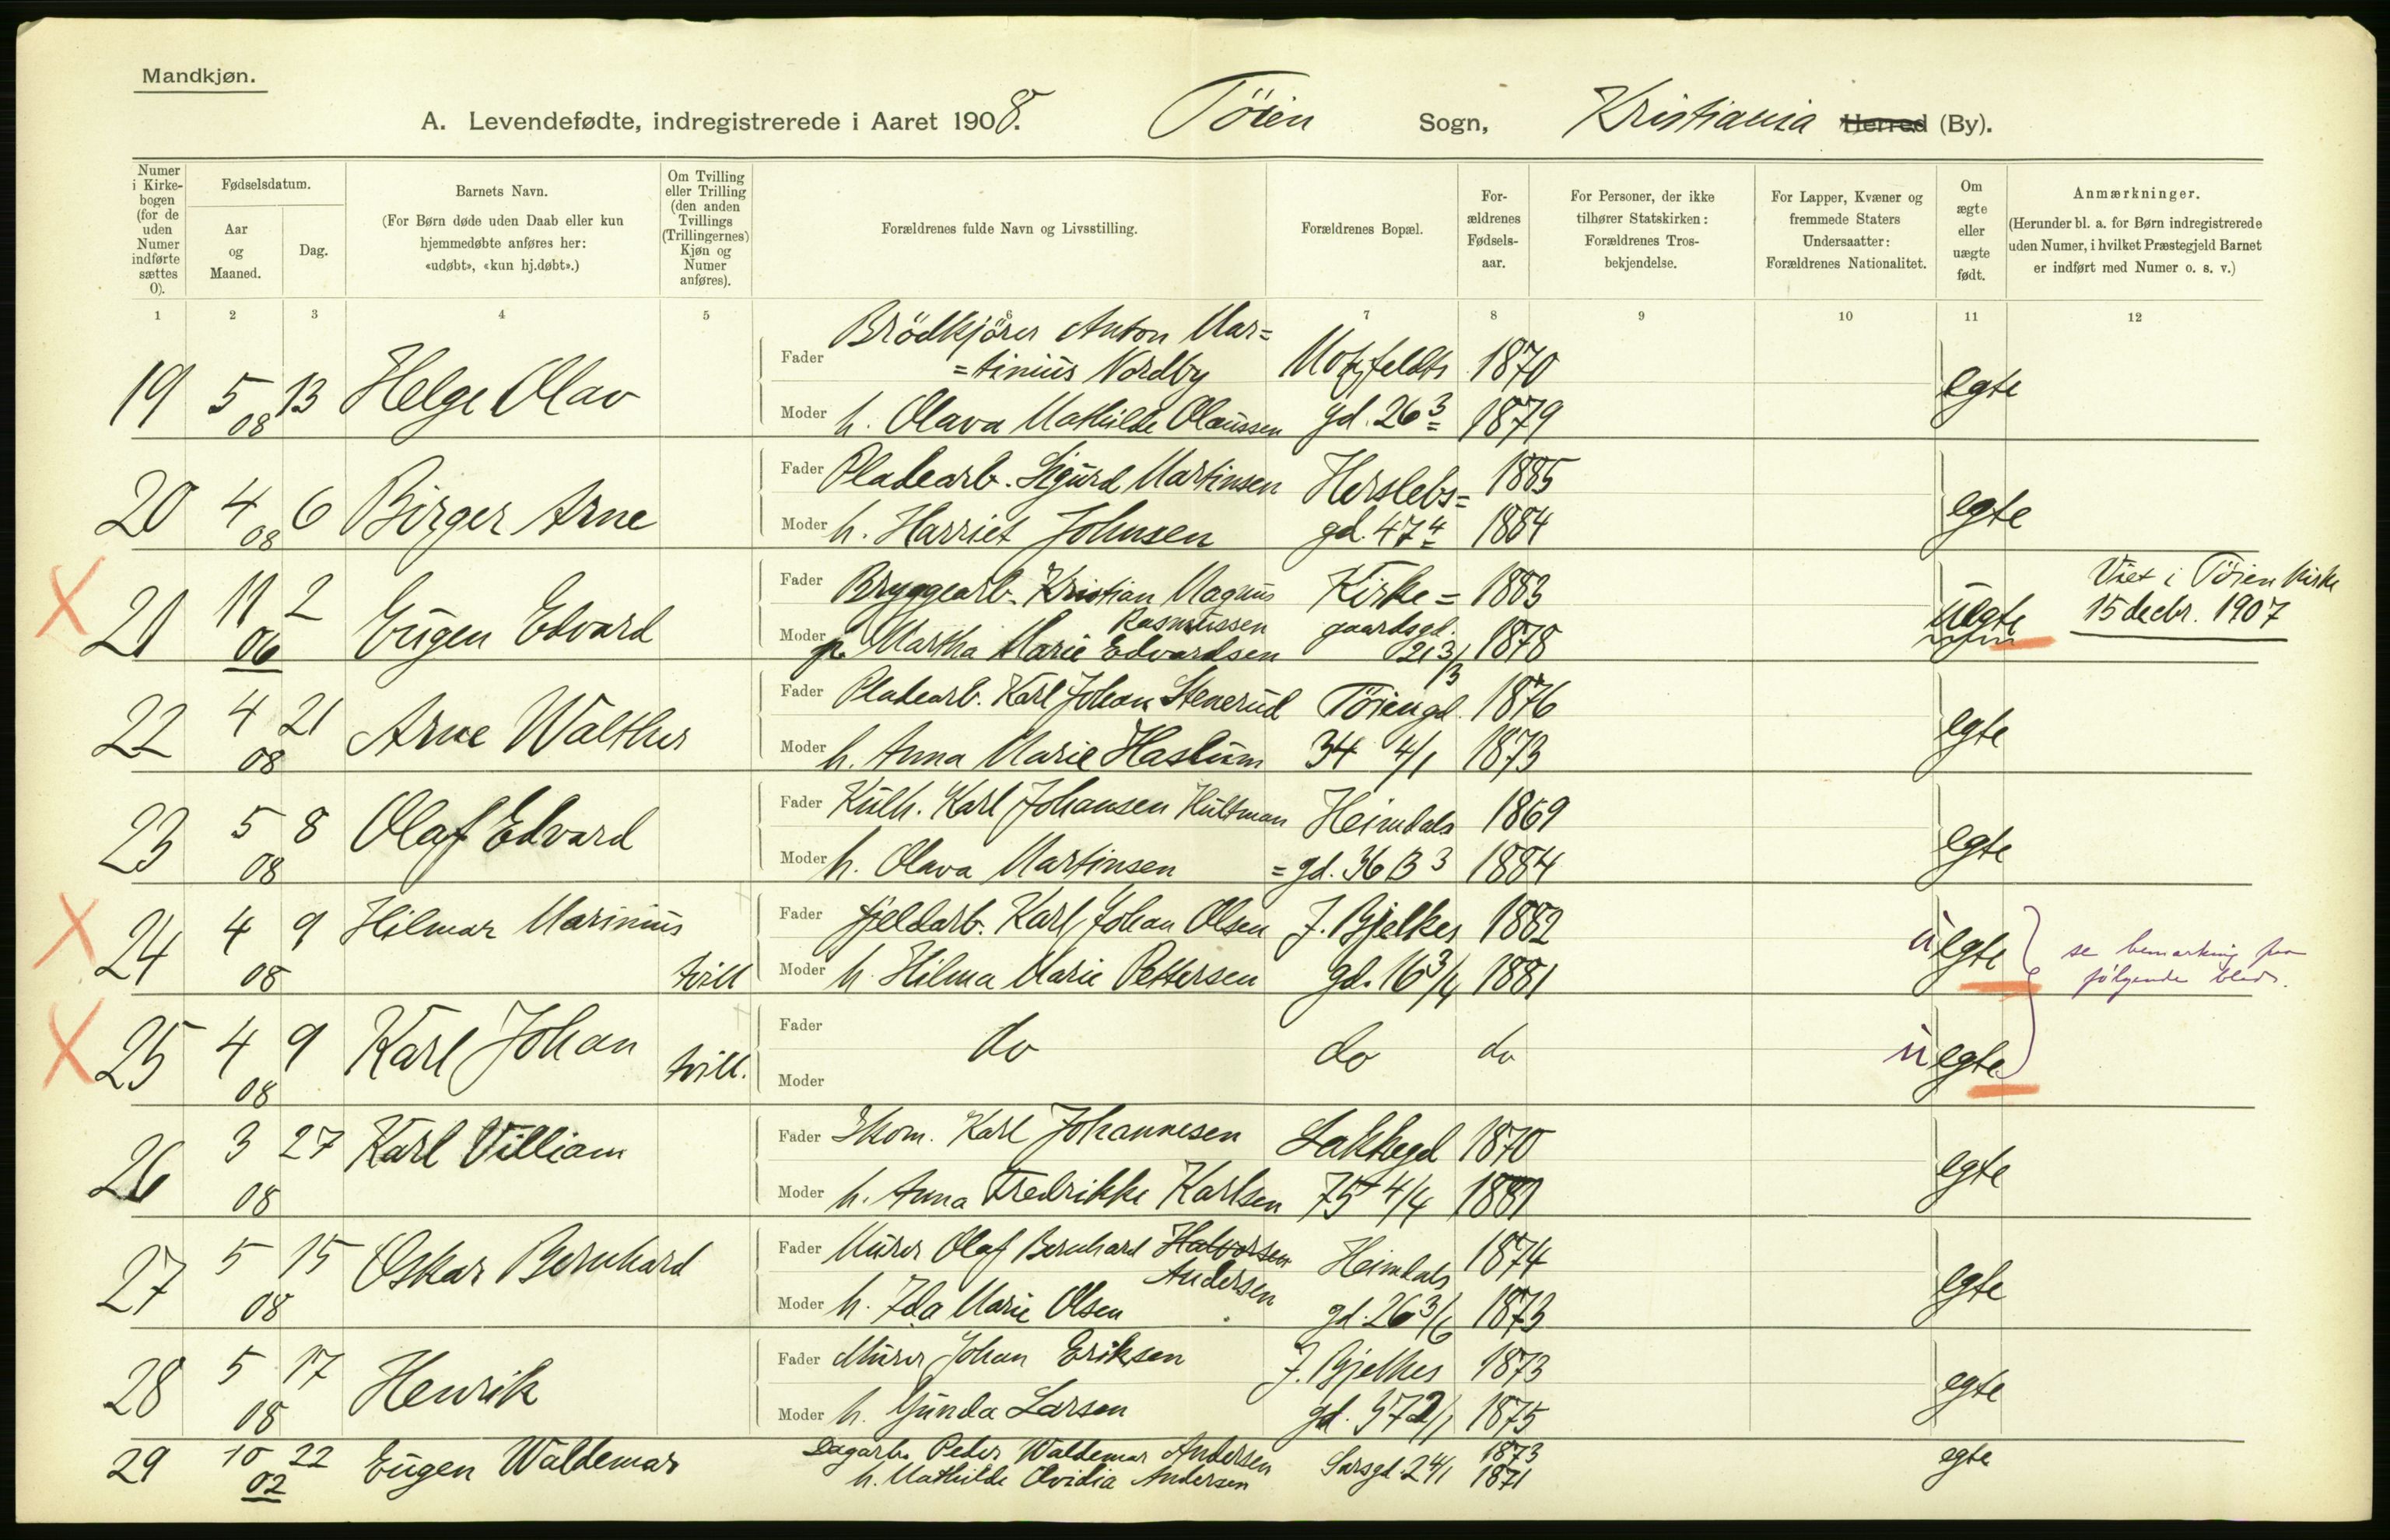 Mandkjøn.
A. Levendefødte, indregistrerede i Aaret 1908. Töien Sogn, Kristiania Herred (By).
Numer i Kirkebogen (for de uden Numer indførte sættes 0).
Fødselsdatum.
Aar og Maaned.
Dag.
Barnets Navn.
(For Børn døde uden Daab eller kun hjemmedøbte anføres her: «udøbt», «kun hj.døbt».)
Om Tvilling eller Trilling (den anden Tvillings (Trillingernes) Kjøn og Numer anføres).
Forældrenes fulde Navn og Livsstilling.
Forældrenes Bopæl.
Forældrenes Fødselsaar.
For Personer, der ikke tilhører Statskirken: Forældrenes Trosbekjendelse.
For Lapper, Kvæner og fremmede Staters Undersaatter: Forældrenes Nationalitet.
Om ægte eller uægte født.
Anmærkninger.
(Herunder bl. a. for Børn indregistrerede uden Numer, i hvilket Præstegjeld Barnet er indført med Numer o. s. v.)
1 2 3 4 5 6 7 8 9 10 11 12
19 5 08 13 Helge Olav
Fader Brödkjörer Anton Mar=
=tinius Nordby Motzfeldts 1870
Moder h. Olava Mathilde Olaussen gd. 26 3 1879 egte
20 4 08 6 Birger Arne
Fader Pladearb. Sigurd Martinsen Herslebs= 1885
Moder h. Harriet Johnsen gd. 47 4 1884 egte
21 11 06 2 Eugen Edvard
Fader Bryggearb. Kristian Magnus Rasmussen Kirke= 1883
Moder p. Martha Marie Edvardsen gaardsgd. 21 3/3 1878 uegte
Viet i Töien Kirke
15 decbr. 1907
22 4 08 21 Arne Walther
Fader Pladearb. Karl Johan Stenerud Töiengd. 1876
Moder h. Anna Marie Haslum 34 4/1 1873 egte
23 5 08 8 Olaf Edvard
Fader Kulh. Karl Johansen Hultman Heimdals 1869
Moder h. Olava Martinsen =gd. 36 B 3 1884 egte
24 4 08 9 Hilmar Marinius tvill
Fader Fjeldarb. Karl Johan Olsen J. Bjelkes 1882
Moder h. Hilma Marie Pettersen gd. 16 3/4 1881 uegte
se bemærkning paa
følgende blad.
25 4 08 9 Karl Johan tvill.
Fader
do do do
Moder uegte
26 3 08 27 Karl Villiam
Fader Skom. Karl Johannesen Lakkegd 1870
Moder h. Anna Fredrikke Karlsen 75 4/4 1881 egte
27 5 08 15 Oskar Bernhard
Fader Murer Olaf Bernhard Halvorsen Andersen Heimdals 1874
Moder h. Ida Marie Olsen gd. 26 3/6 1873 egte
28 5 08 17 Henrik
Fader Murer Johan Eriksen J. Bjelkes 1873
Moder h. Gunda Larsen gd. 57 2/1 1875 egte
29 10 02 22 Eugen Waldemar
Dagarb. Peder Waldemar Andersen Sarsgd. 2 4/1 1873
h. Mathilde Ovidia Andersen 1871 egte